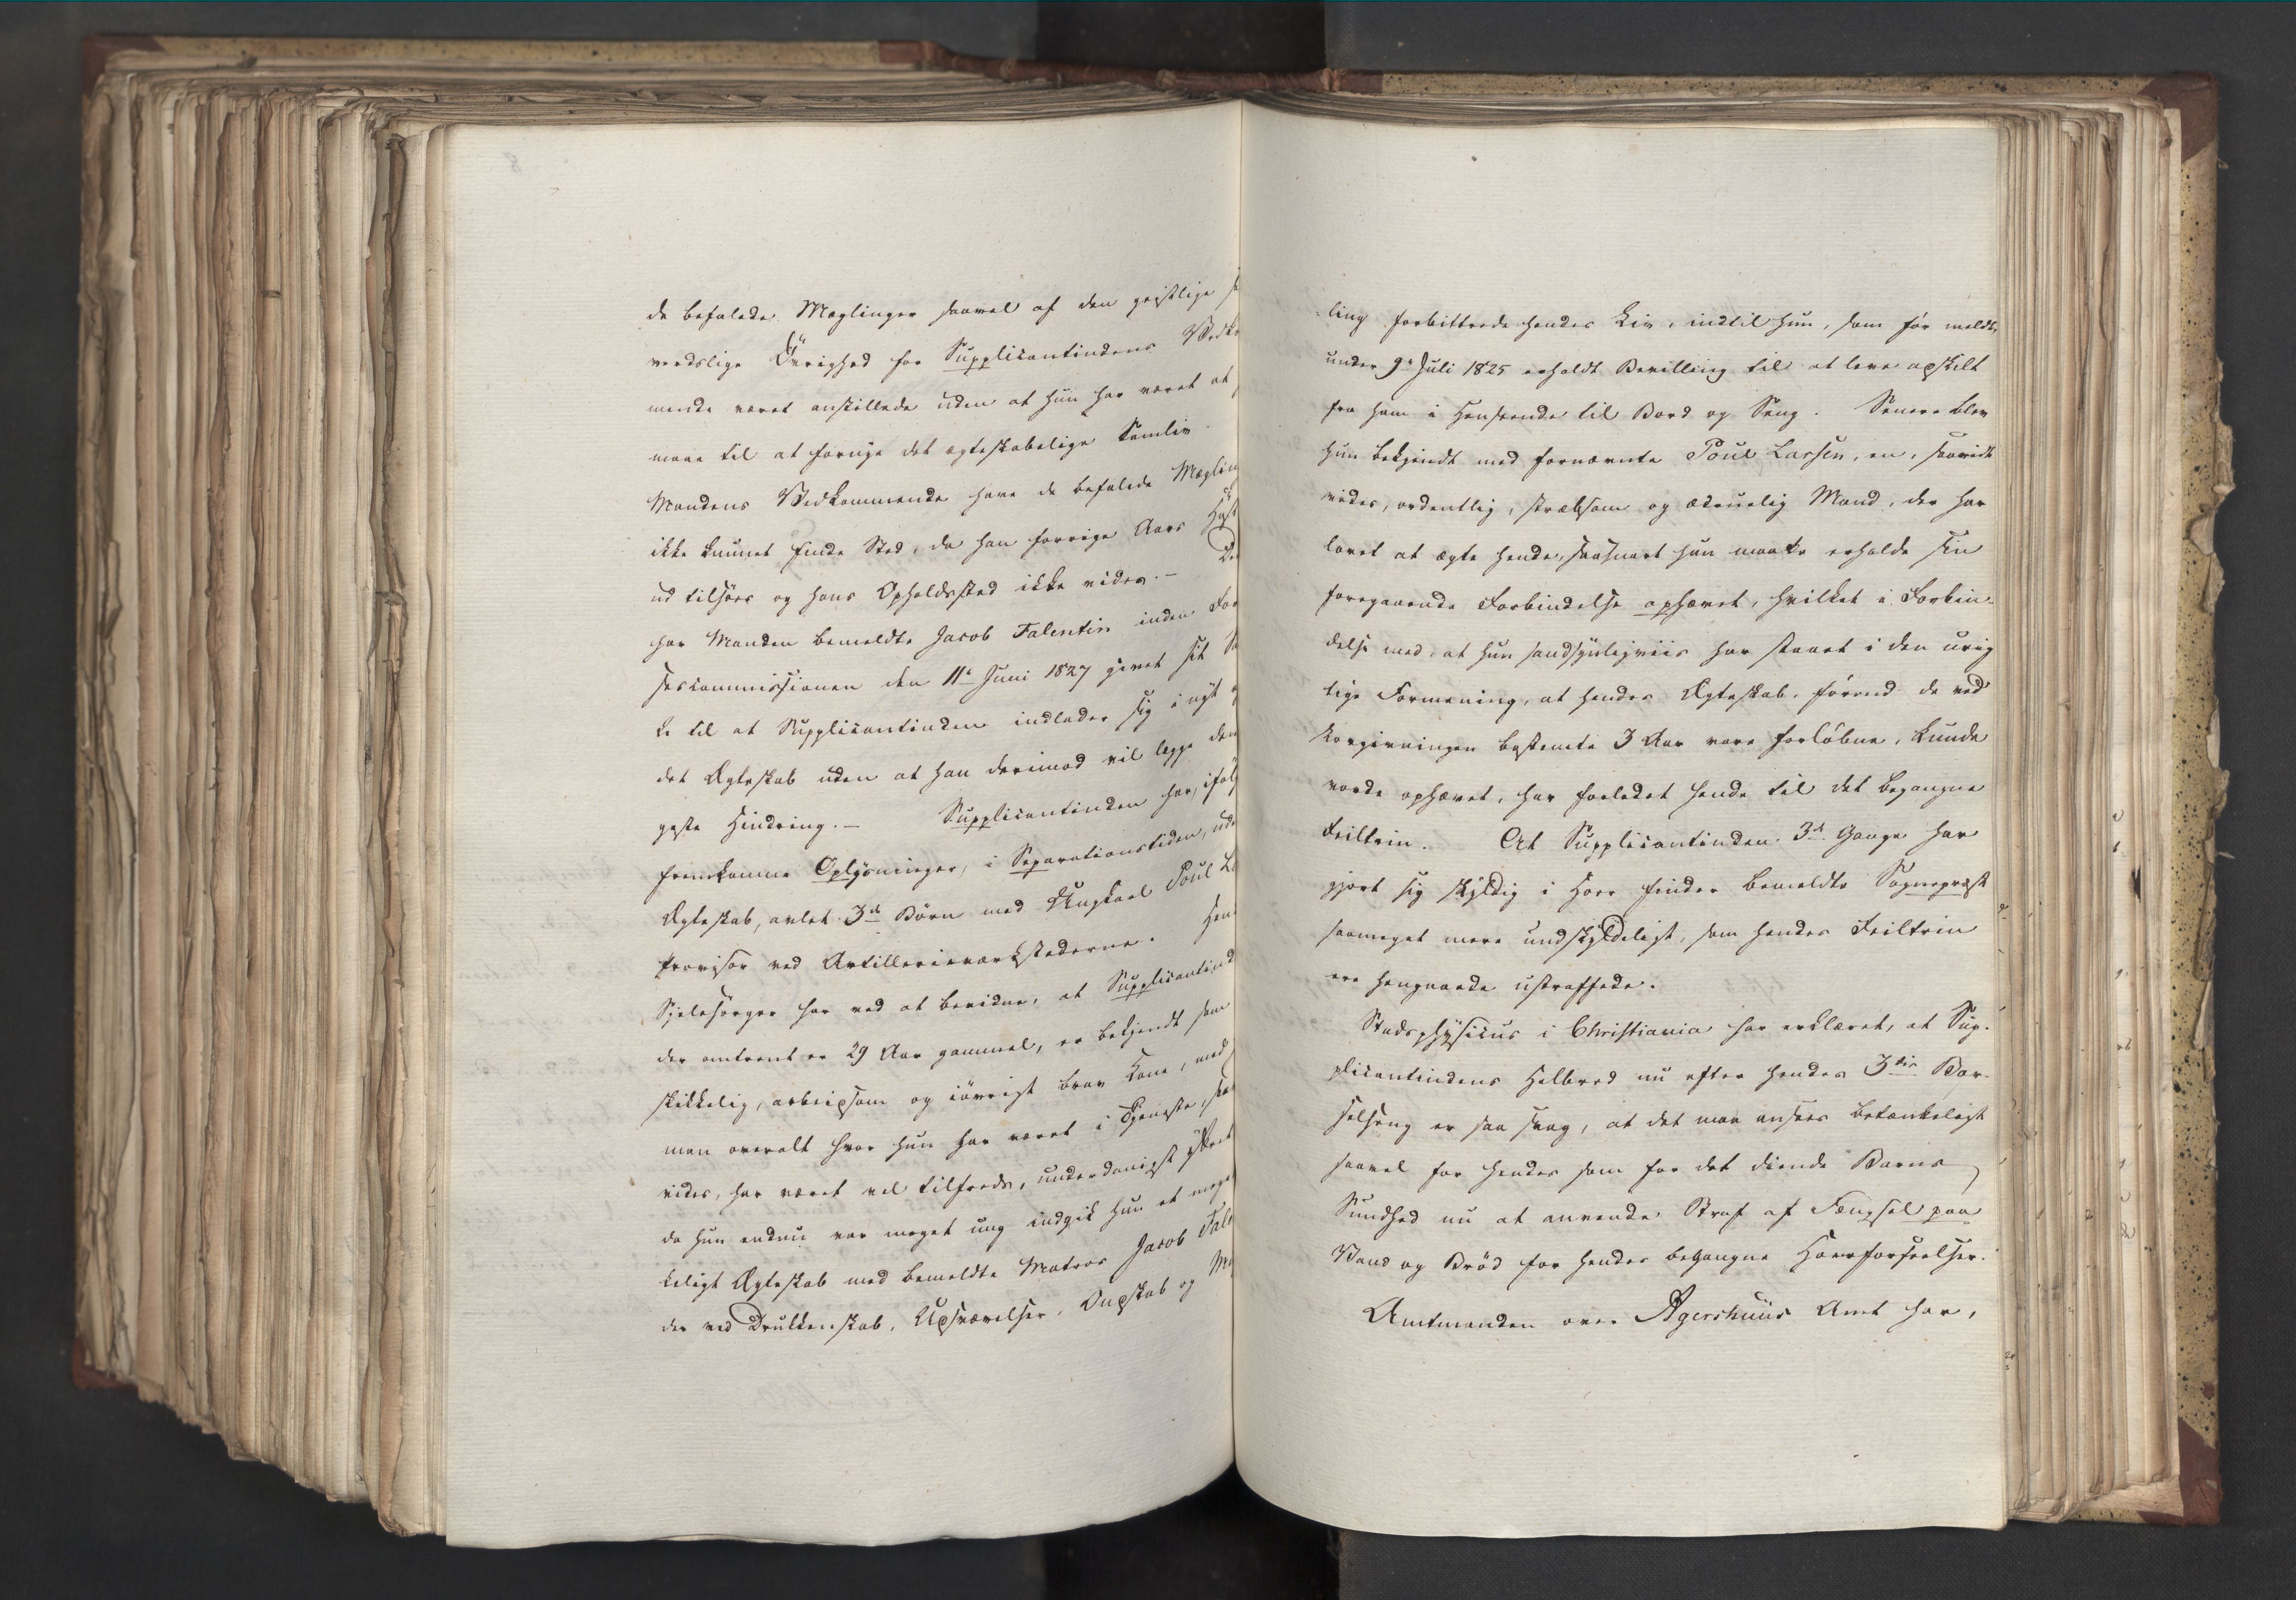 de befalede Mæglinger saavel af den geistlige s
verdslige Øvrighed for Supplicantindens Vedko
mende været anstillede uden at hun har været at
maae til at fornye det ægteskabelige Samliv.
Mandens Vedkommende have de befalede Mæglin
ikke kunnet finde Sted, da han forrige Aars Høst
ud tilsøes og hans Opholdssted ikke vides. – De
har Manden bemeldte Jacob Falentin inden For
sescommissionen den 11te Juni 1827 givet sit Sa
ke til at Supplicantinden indlader sig i nyt
det Ægteskab uden at han derimod vil lægge den
geste Hindring. – Supplicantinden har, ifølg
fremkomne Oplysninger, i Separationstiden, ude
Ægteskab, avlet 3de Børn med Ungkarl Poul La
Provisor ved Artilleriværkstederne. Hen
Sjelesørger har ved at bevidne, at Supplicantind
der omtrent er 29 Aar gammel, er bekjendt som
skikkelig, arbeidsom og iøvrigt brav Kone, med
man overalt hvor hun har været i Tjeneste, saa
vides, har været vel tilfreds, underdanigst yttret
da hun endnu var meget ung indgik hun et meget
keligt Ægteskab med bemeldte Matros Jacob Fale
der ved Drukkenskab, Udsvævelser, Ondskab og Mi
ling forbittrede hendes Liv, indtil hun, som før meldt,
under 9de Juli 1825 erholdt Bevilling til at leve adskilt
fra ham i Henseende til Bord og Seng. Senere blev
hun bekjendt med fornævnte Poul Larsen, en, saavidt
vides, ordentlig, stræbsom og ædruelig Mand, der har
lovet at ægte hende, saasnart hun maatte erholde sin
foregaaende Forbindelse ophævet, hvilket i Forbin-
delse med, at hun sandsynligviis har staaet i den urig
tige Formening, at hendes Ægteskab, førend de ved
Lovgivningen bestemte 3 Aar vare forløbne, kunde
vorde ophævet, har forledet hende til det begangne
Feiltrin. At Supplicantinden 3de Gange har
gjort sig skyldig i Hoer finder bemeldte Sognepræst
saameget mere undskyldeligt, som hendes Feiltrin
ere hengaaede ustraffede.
Stadsphysicus i Christiania har erklæret, at Sup-
plicantindens Helbred nu efter hendes 3die Bar-
selseng er saa svag, at det maa ansees betænkeligt
saavel for hendes som for det diende Barns
Sundhed nu at anvende Straf af Fængsel paa
Vand og Brød for hendes begangne Hoerforseelser.
Amtmanden over Agershuus Amt har,